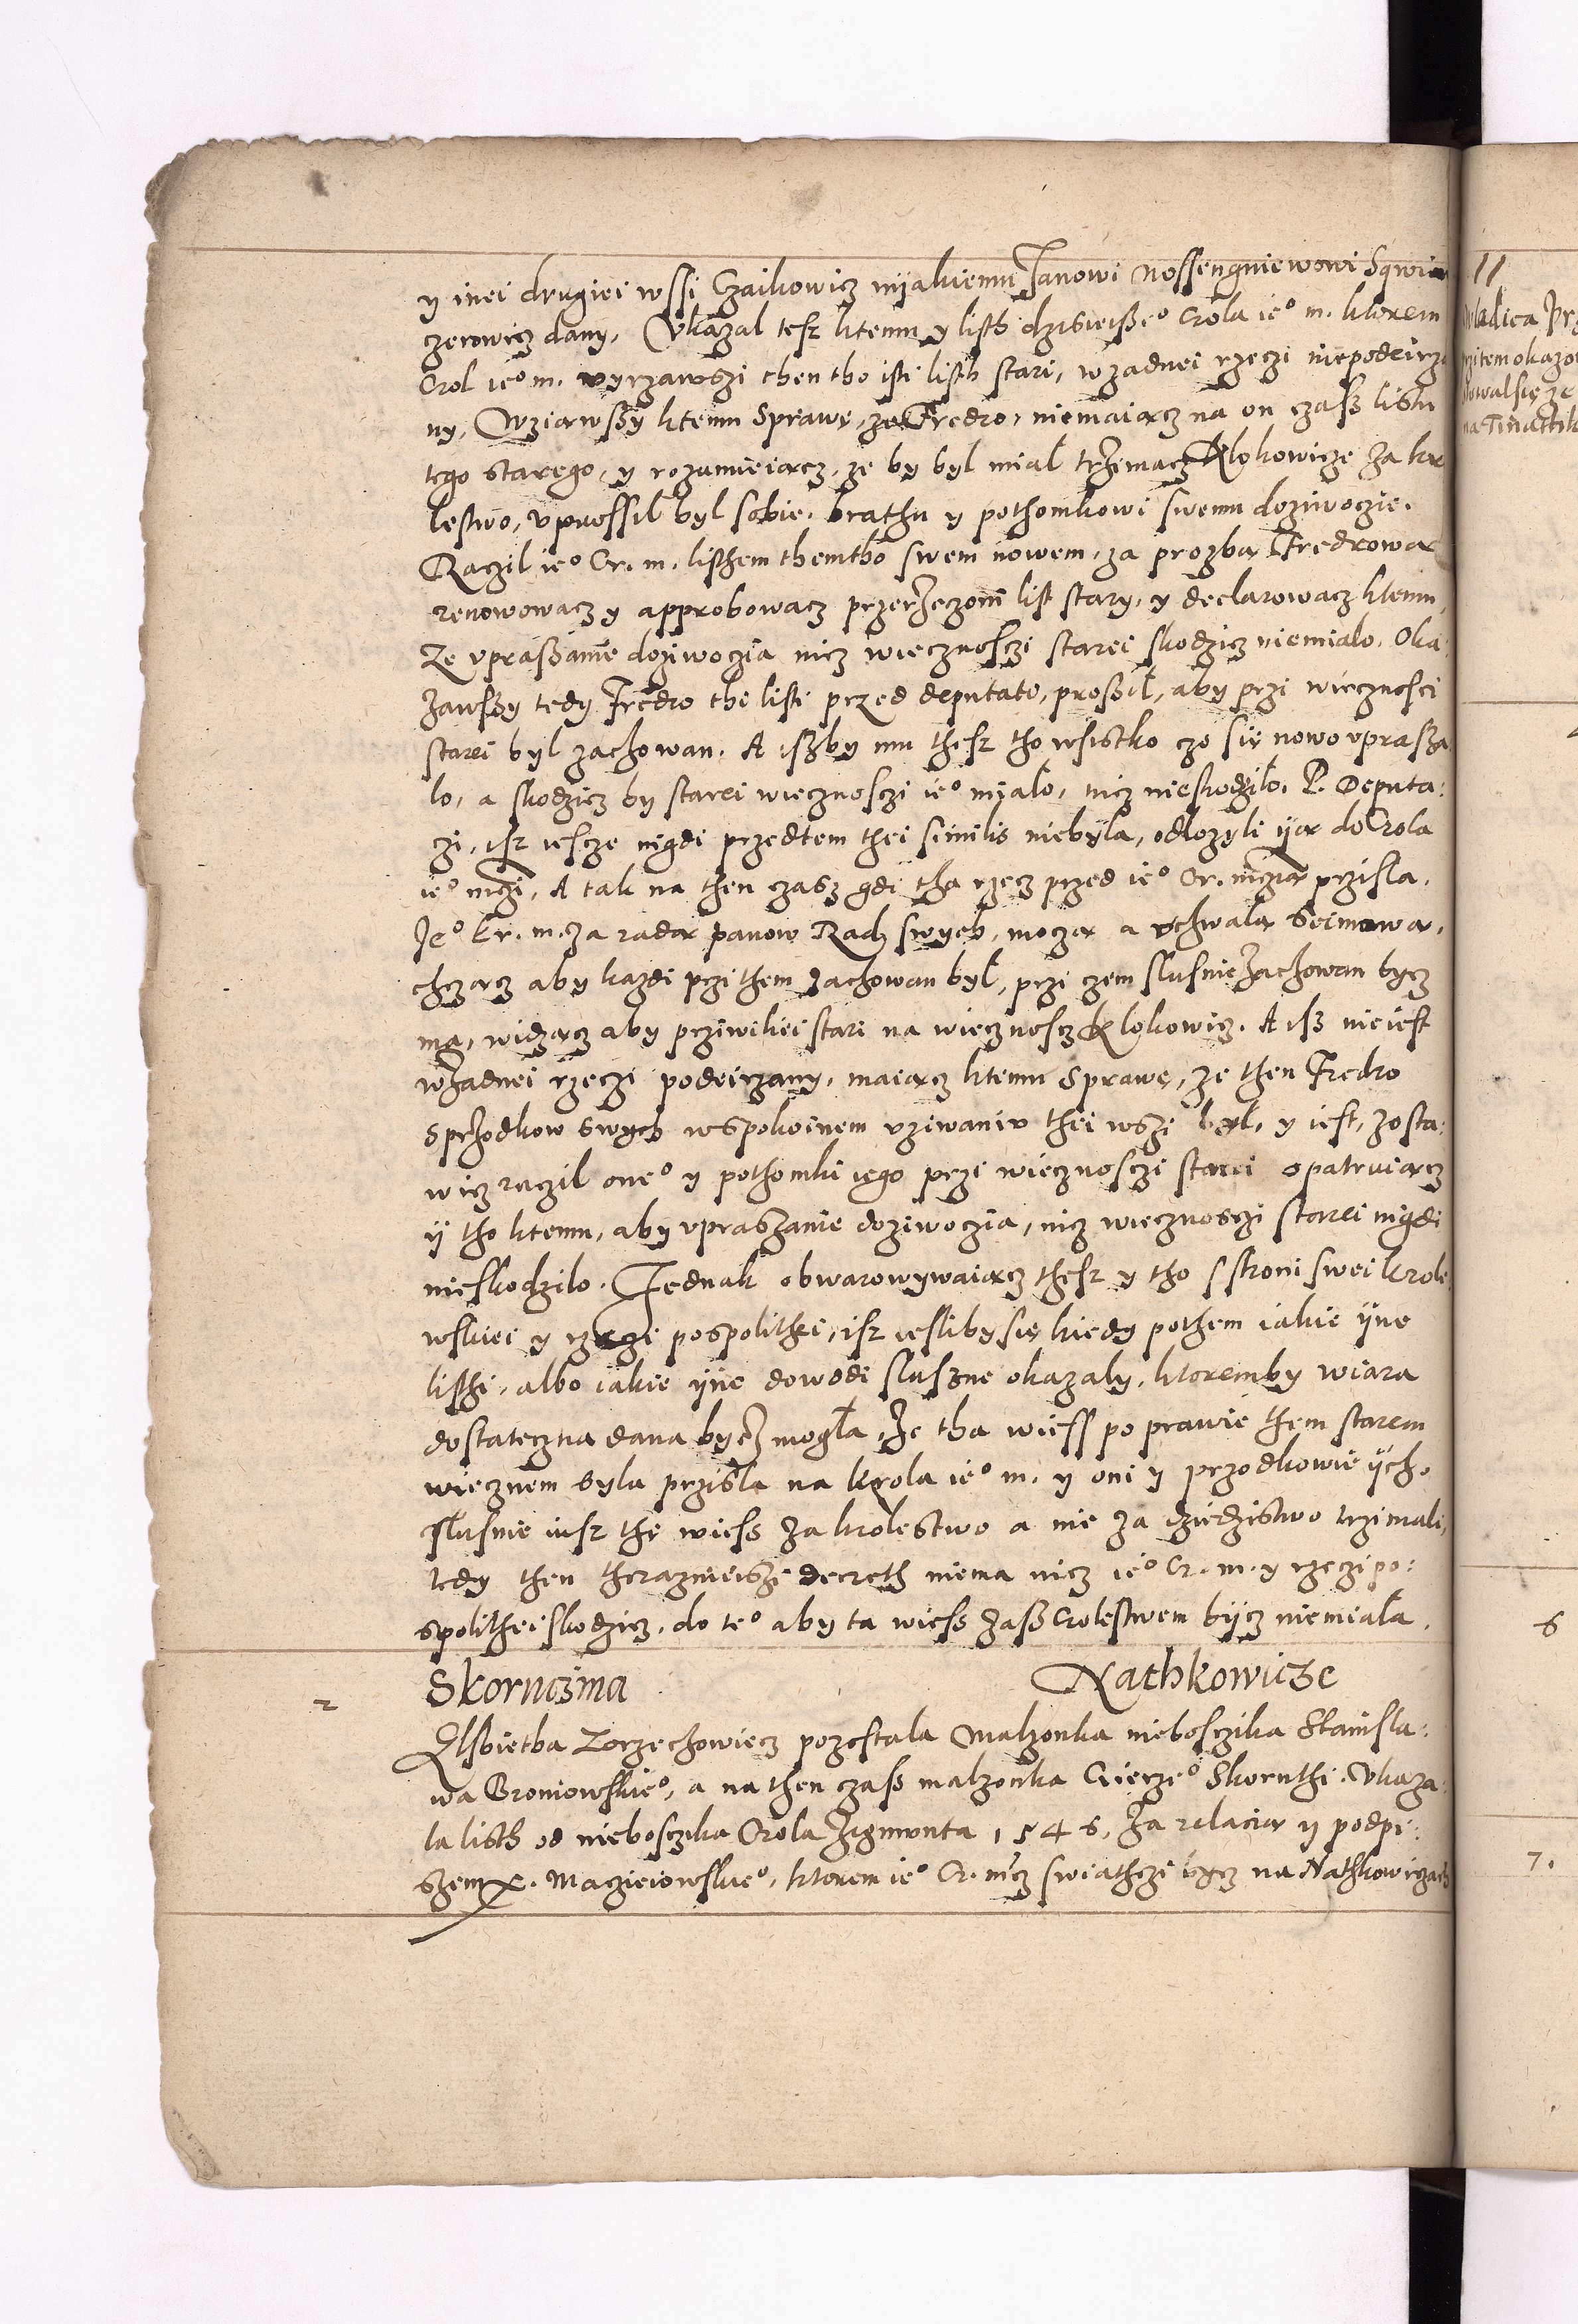 y inei drugiei wssi Czaikowicz nijakiemu Janowi Nossengniewowi
czerowicz dany, Vkazal tesz ktemu y listh dzisieisze° Crola ie° m. ktorem
Crol ie° m. vyrzawszi then tho isti listh stari, w zadnei rzeczi niepodeirza
ny, Wziawszy ktemu Sprawę, ze Fredro, niemaiącz na on czasz listu
tego starego, y rozumieiącz, ze by byl mial trzimacz Klokowicze za kro
lestwo, vprossil byl sobie, brathu y pothomkowi swemu dozivoczie.
Raczil ie° Cr. m. listhem themtho swem nowem, za prozbą Fredrową
renowowacz y approbowacz przerzeczony list stary, y declarowacz ktemu,
Ze vpraszanie dozivoczia nicz wiecznosczi starei skodzicz niemialo. Oka:
zawszy tedy Fredro thi listi przed deputati, prosził, aby przi wiecznosci
starei byl zachowan. A iszby mu thesz tho wsistko czo się nowo vprasza
lo, a skodzicz by starei wiecznosczi ie° mialo, nicz nieskodzilo. P. Deputa:
czi, isz iescze nigdi przedtem thei similis niebyla, odlozyli ią do Crola
ie° mczi, A tak na then czasz gdi tha rzecz przed ie° Cr. mczią przisla,
Je° kr. m. za radą panow Rad swych, moczą a vchwalą Seimową,
chcząc aby kazdi przithem zachowan byl, przi czem slusnie zachowan bycz
ma, widzącz aby prziwilei stari na wiecznosc Klokowicz. A isz nie iest
w zadnei rzeczi podeirzany, maiącz ktemu Sprawę, ze then Fredro
s przodkow swych w spokoinem vziwaniu thei wszi byl, y iest, zosta:
wicz raczil one° y pothomki iego przi wiecznosczi starei opatruiącz
y tho ktemu, aby vpraszanie doziwoczia, nicz wiecznosczi starei nigdi
nieskodzilo. Jednak obwarowywaiącz thesz y tho s stroni swei krole
wskiei y rzeczi pospolithei, isz iesliby się kiedy pothem iakie ijne
listhi, albo iakie ijne dowodi slusne okazaly, ktoremby wiara
dostateczna dana bycz mogla, Ze tha wiess po prawie them starem
wiecznem byla przisla na krola ie° m. y oni y przodkowie ijch,
slusnie iusz the wiess za krolestwo a nie za dziedzistwo trzimali,
tedy then therazneiszi decreth niema nicz ie° Cr. m. y rzeczi po:
spolithei skodzicz, do te° aby ta wiess zasz Crolestwem bijcz niemiala.
2 Skoruczina Nathkowicze
Elsbietha Zorzechowiecz pozostala Malzonka niebosczika Stanisla:
wa Broniowskie°, a na then czasz malzonka Gierze° Skoruthi. Vkaza:
la listh od niebosczika Crola Zigmonta 1546, Za relacią y podpi:
szem X. Maczieiowskie°, ktorem ie° Cr. mcz swiathczi bycz na Nathkowiczach
11
Wladica Prz
6
7.